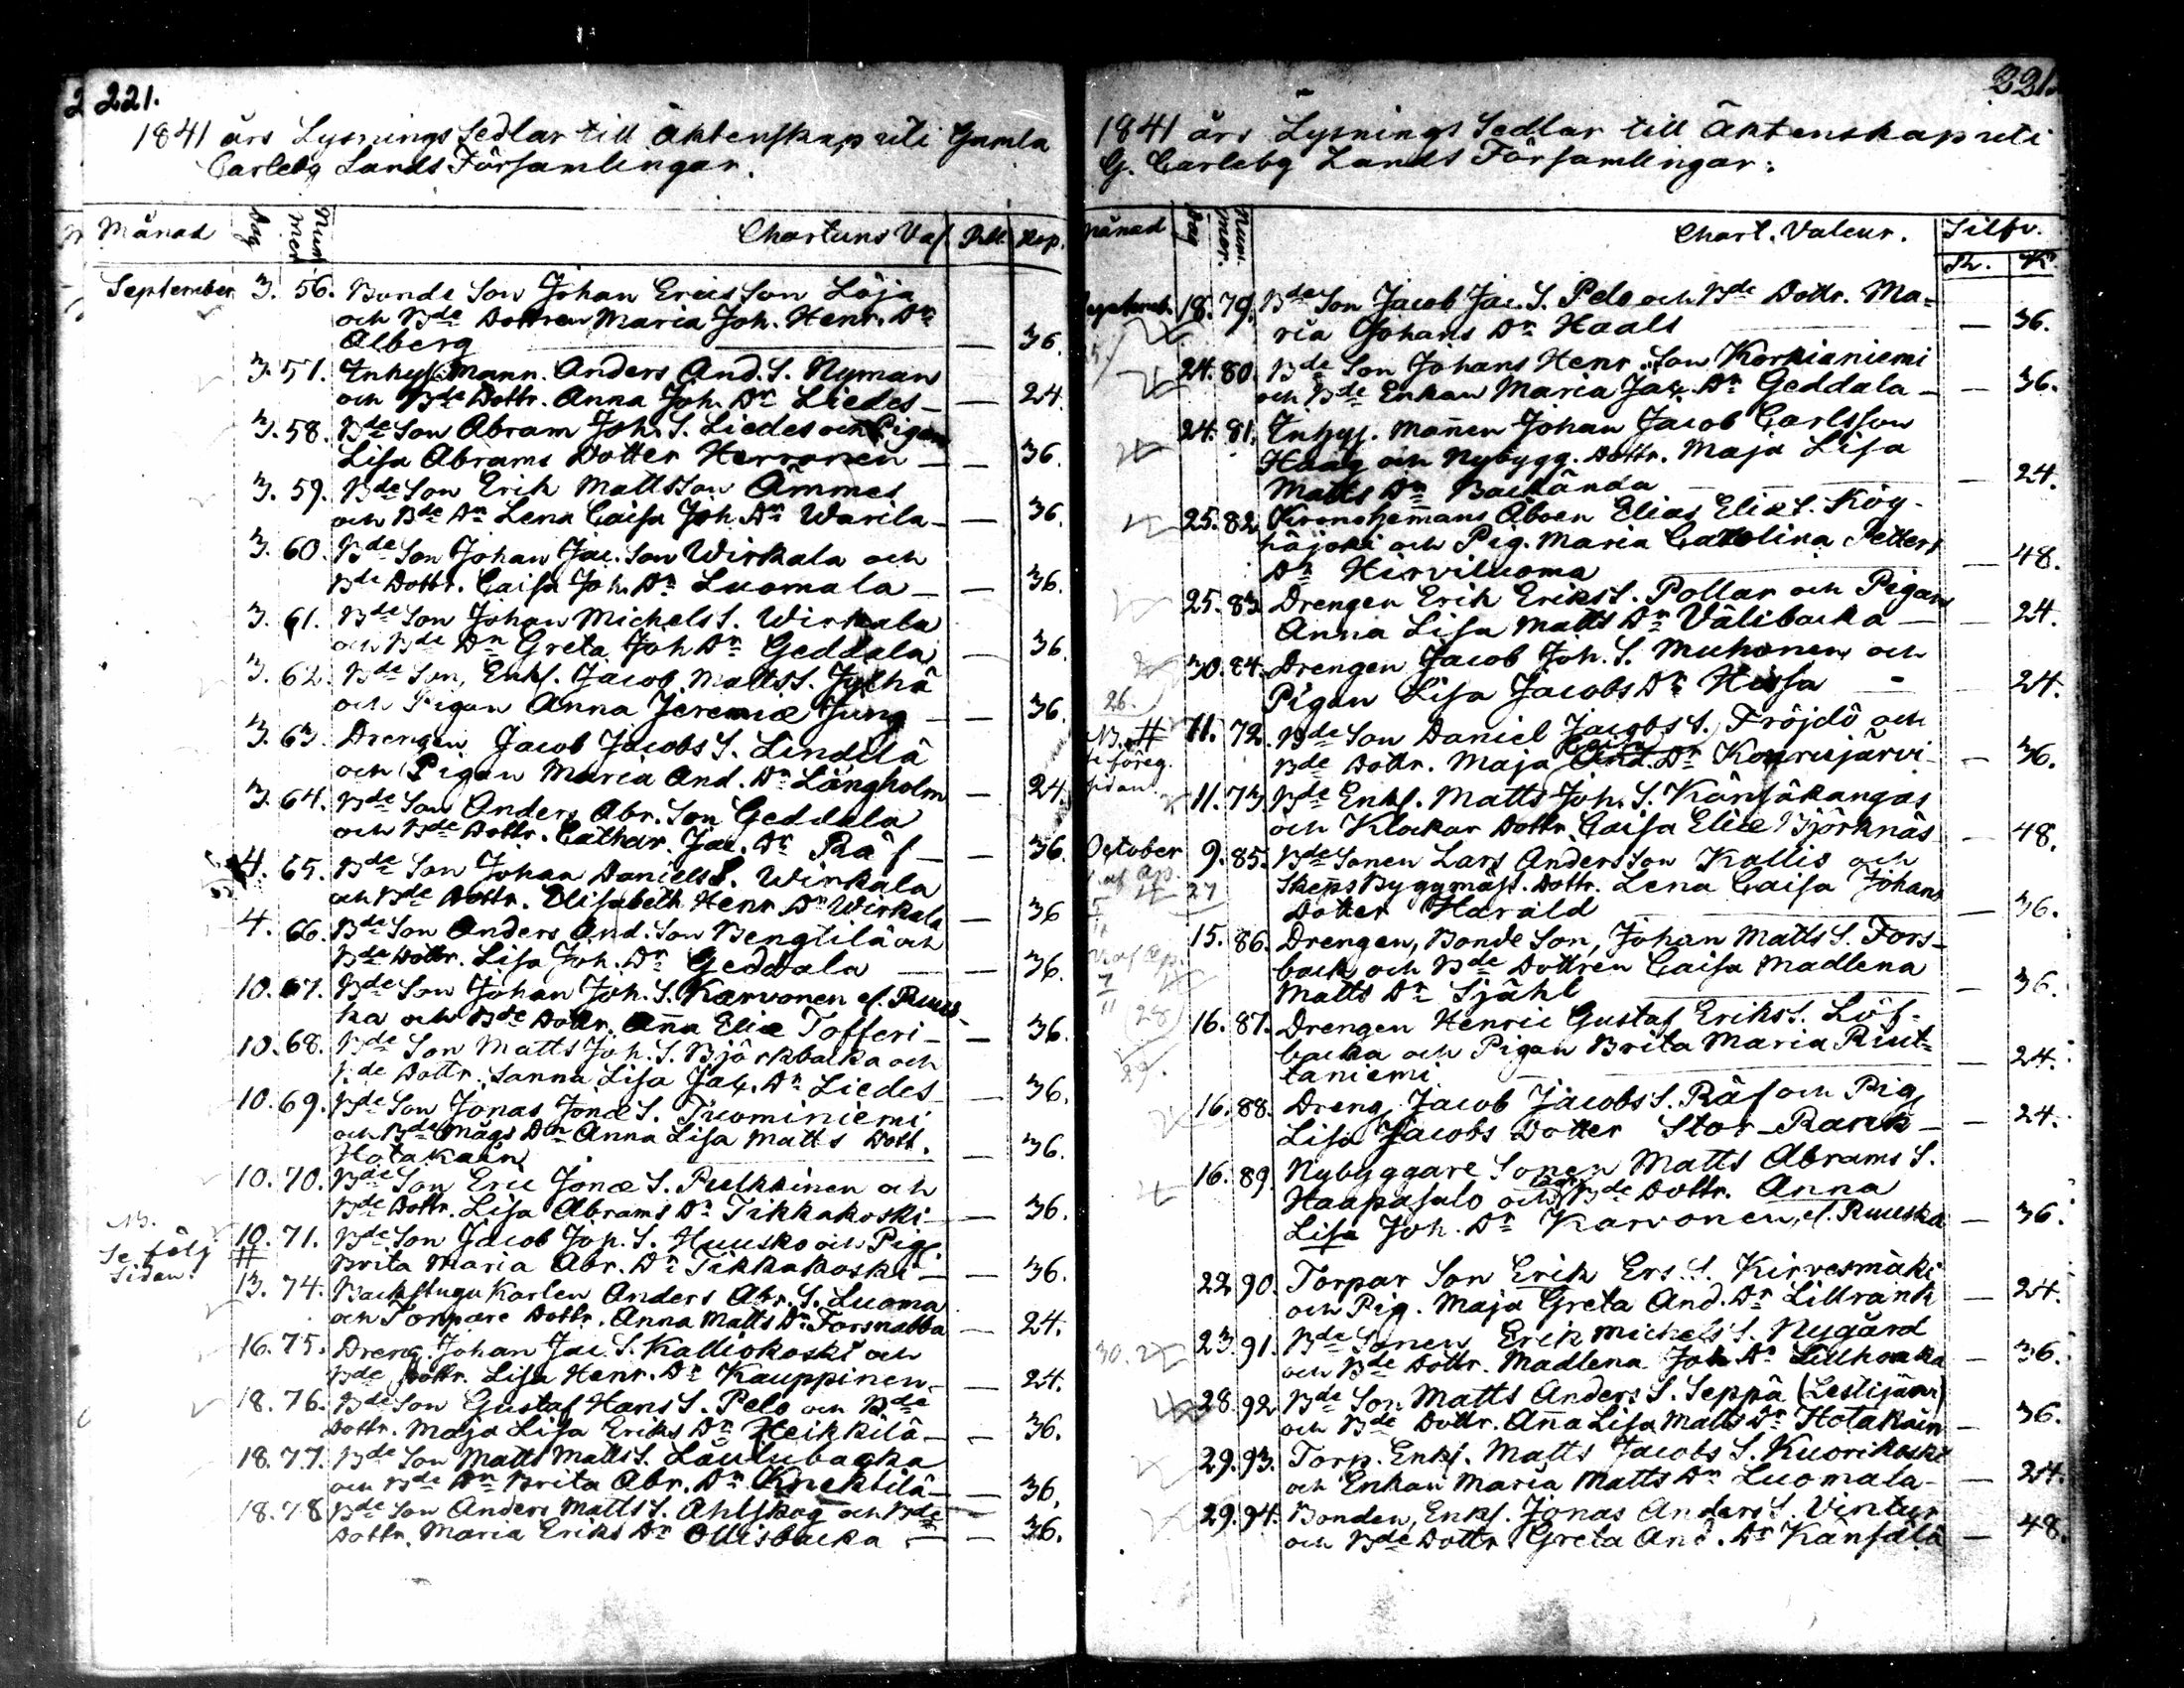 221.
1841 års Lysnings Sedlar till Äktenskap uti Gamla
Carleby Lands Församlingar.
Månad Dag Num̄mer Chartæns Val Rbl. Kop.
September 3. 56. Bonde Son Johan Ericsson Löja
och Bde Dottren Maria Joh. Henr. Dr
Alberg — 36.
3. 57. Inhys. Mann. Anders And. S. Nyman
och Bde Dottr. Anna Joh. Dr Liedes — 24.
3. 58. Bde Son Abram Joh. S. Liedes och Pigan
Lisa Abrams Dotter Herronen — 36.
3. 59. Bde Son Erik Mattsson Åmmes
och Bde Dr Lena Caisa Joh. Dr Warila — 36.
3. 60. Bde Son Johan Jac. Son Wirkala och
Bde Dottr. Caisa Joh. Dr Luomala — 36.
3. 61. Bde Son Johan Michels S. Wirkala
och Bde Dr Greta Joh Dr Geddala — 36.
3. 62. Bde Son, Enkl. Jacob Matts S. Jylhä
och Pigan Anna Jeremiæ Jung — 36.
3. 63. Drengen Jacob Jacobs S. Lindilä
och Pigan Maria And. Dr Långholm — 24.
3. 64. Bde Son Anders Abr. Son Geddala
och Bde Dottr. Cathar. Jac. Dr Räf — 36.
4. 65. Bde Son Johan Daniels S. Wirkala
och Bde Dottr. Elisabeth Henr. Dr Wirkala — 36
4. 66. Bde Son Anders And. Son Bengtilä och
Bde Dottr. Lisa Joh. Dr Geddala — 36.
10. 67. Bde Son Johan Joh. S. Karvonen el. Ruus-
ka och Bde Dottr. Anna Eliæ Tofferi — 36.
10. 68. Bde Son Matts Joh. S. Björkbacka och
Bde Dottr. Sanna Lisa Jac. Dr Liedes — 36.
10. 69. Bde Son Jonas Jonæ S. Tuominiemi
och Bde Mågs Dn Anna Lisa Matts Dott.
Hotakain — 36.
10. 70. Bde Son Eric Jonæ S. Pulkkinen och
Bde Dottr. Lisa Abrams Dr Tikkakoski — 36.
NB.
Se följ
Sidan.
10. 71. Bde Son Jacob Joh. S. Huusko och Pig.
# Brita Maria Abr. Dr Tikkakoski — 36.
13. 74. Backstugu Karlen Anders Abr. S. Luoma
och Torpare Dottr. Anna Matts Dr Forsnabba — 24.
16. 75. Dreng. Johan Jac. S. Kalliokoski och
Bde Dottr. Lisa Henr. Dr Kauppinen — 24.
18. 76. Bde Son Gustaf Hans S. Pelo och Bde
Dottr. Maja Lisa Eriks Dr Heikkilä — 36.
18. 77. Bde Son Matts Matts S. Laulubacka
och Bde Dr Brita Abr. Dr Knektilä — 36.
18. 78 Bde Son Anders Matts S. Ahlskog och Bde
Dottr. Maria Eriks Dr Ollisbacka — 36.
221.
1841 års Lysnings Sedlar till Äktenskap uti
G. Carleby Lands Församlingar.
Månad Dag Num̄mer. Chart. Valeur. Silfv.
R. K.
Septemb. 18. 79. Bde Son Jacob Jac. S. Pelo och Bde Dottr. Ma-
ria Johans Dr Haals — 36.
24. 80. Bde Son Johans Henr. Son Korkianiemi
och Bde Enkan Maria Jac. Dr Geddala — 36.
24. 81. Inhys. Mannen Johan Jacob Carlsson
Haag och Nybygg. Dottr. Maja Lisa
Matts Dr Backända — 24.
25. 82 Kronohemans Åboen Elias Eliæ S. Köy-
häjoki och Pig. Maria Catolina Petters
Dr Hirviluoma — 48.
25. 83 Drengen Erik Eriks S. Pollar och Pigan
Anna Lisa Matts Dr Välibacka — 24.
30. 84. Drengen Jacob Joh. S. Muhonen och
Pigan Lisa Jacobs Dr Hissa — 24.
26.
NB. # 11. 72. Bde Son Daniel Jacobs S. Fröjdö och
se föreg.
sidan.
Bde Dottr. Maja And. Dr Konrujärvi — 36.
11. 73. Bde Enkl. Matts Joh. S. Känsäkangas
och Klockar Dottr. Caisa Eliæ Björknäs — 48.
October 9. 85. Bde Sonen Lars Andersson Kallis och
27 Skeps Byggmäst. Dottr. Lena Caisa Johans
Dotter Harald — 36.
15. 86. Drengen, Bonde Son, Johan Matts S. Fors-
back och Bde Dottren Caisa Madlena
Matts Dr Sjähl — 36.
(28) 16. 87. Drengen Henric Gustaf Eriks S. Löf-
29. backa och Pigan Brita Maria Ruut-
taniemi — 24.
16. 88. Dreng. Jacob Jacobs S. Räf och Pig.
Lisa Jacobs Dotter Stor-Rank — 24.
16. 89. Nybyggare Sonen Matts Abrams S.
Haapasalo och Bde Dottr. Anna
Lisa Joh. Dr Karvonen, el. Ruuska — 36.
22 90. Torpar Son Erik Ers. S. Kirvesmäki
och Pig. Maja Greta And. Dr Lillrank — 24.
30. 23. 91. Bde Sonen Erik Michels S. Nygård
och Bde Dottr. Madlena Joh. Dr Lillhonka — 36.
28. 92 Bde Son Matts Anders S. Seppä (Lestijärvi)
och Bde Dottr. Anna Lisa Matts Dr Hotakain — 36.
29. 93. Torp. Enkl. Matts Jacobs S. Kuorikoski
och Enkan Maria Matts Dr Luomala — 24.
29. 94. Bonden, Enkl. Jonas Anders S. Vintur
och Bde Dottr Greta And. Dr Kansälä — 48.